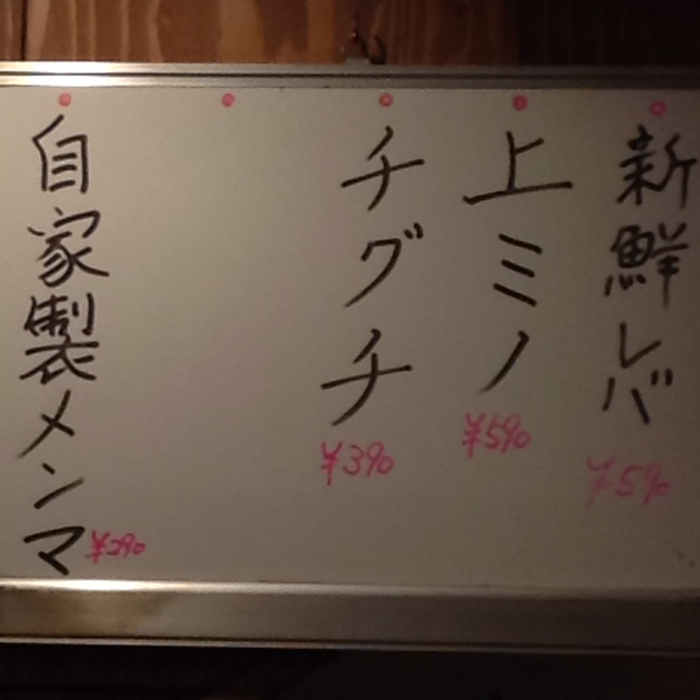 新鮮レバ
¥590
上ミノ
¥590
チグチ
¥390
自家製メンマ
¥290